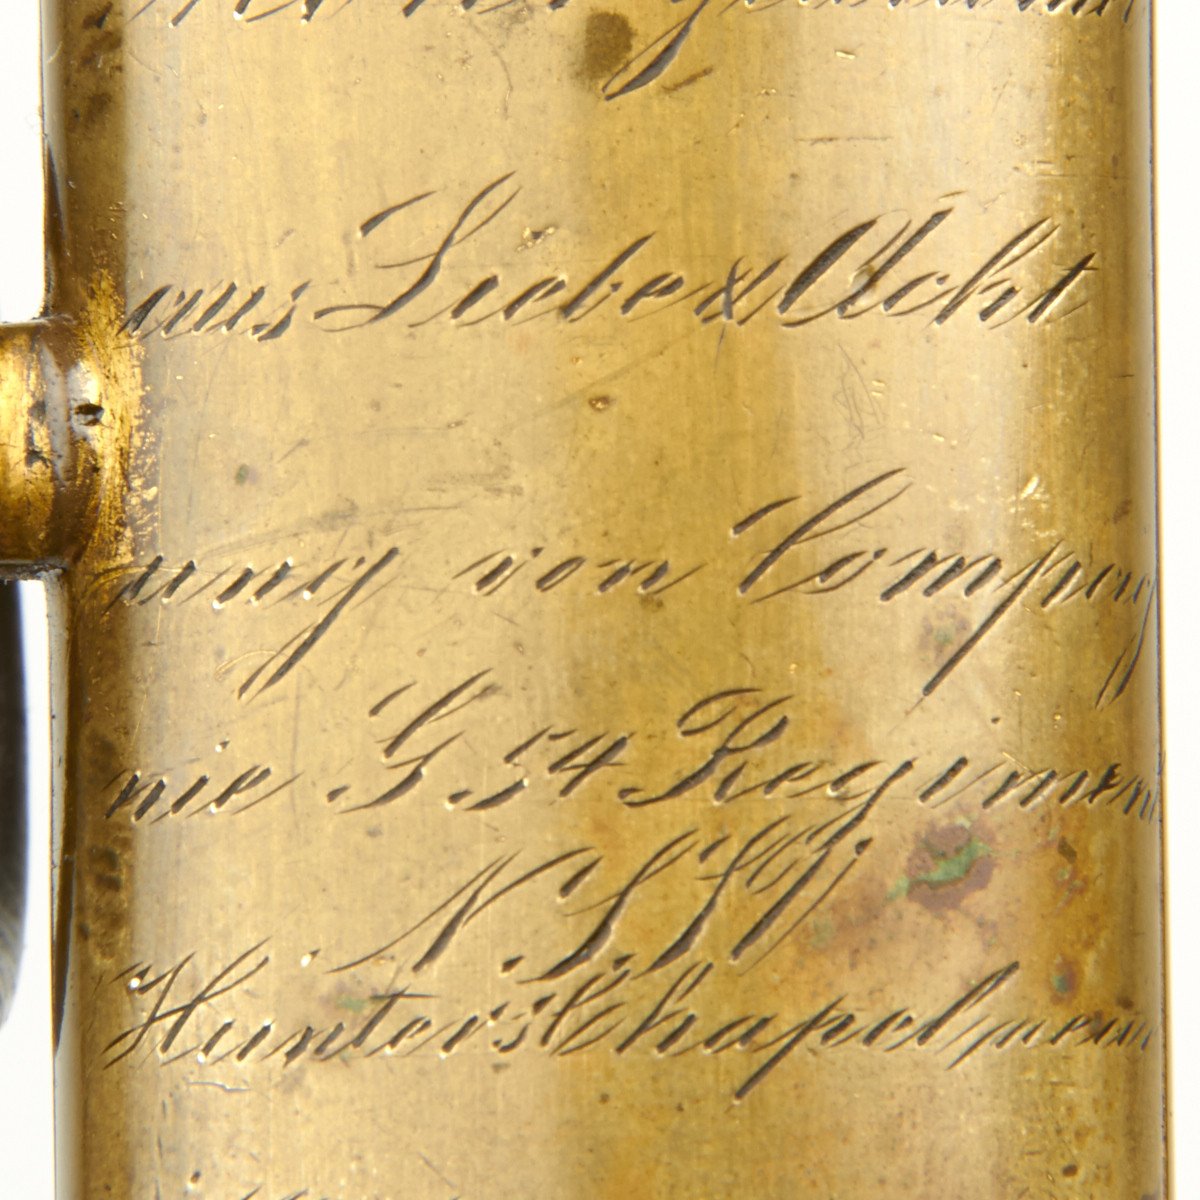 aus Liebe & Acht
ung von Compag
nie G. 54 Regiment
N. Y. S. V.
Hunter's Chapel near